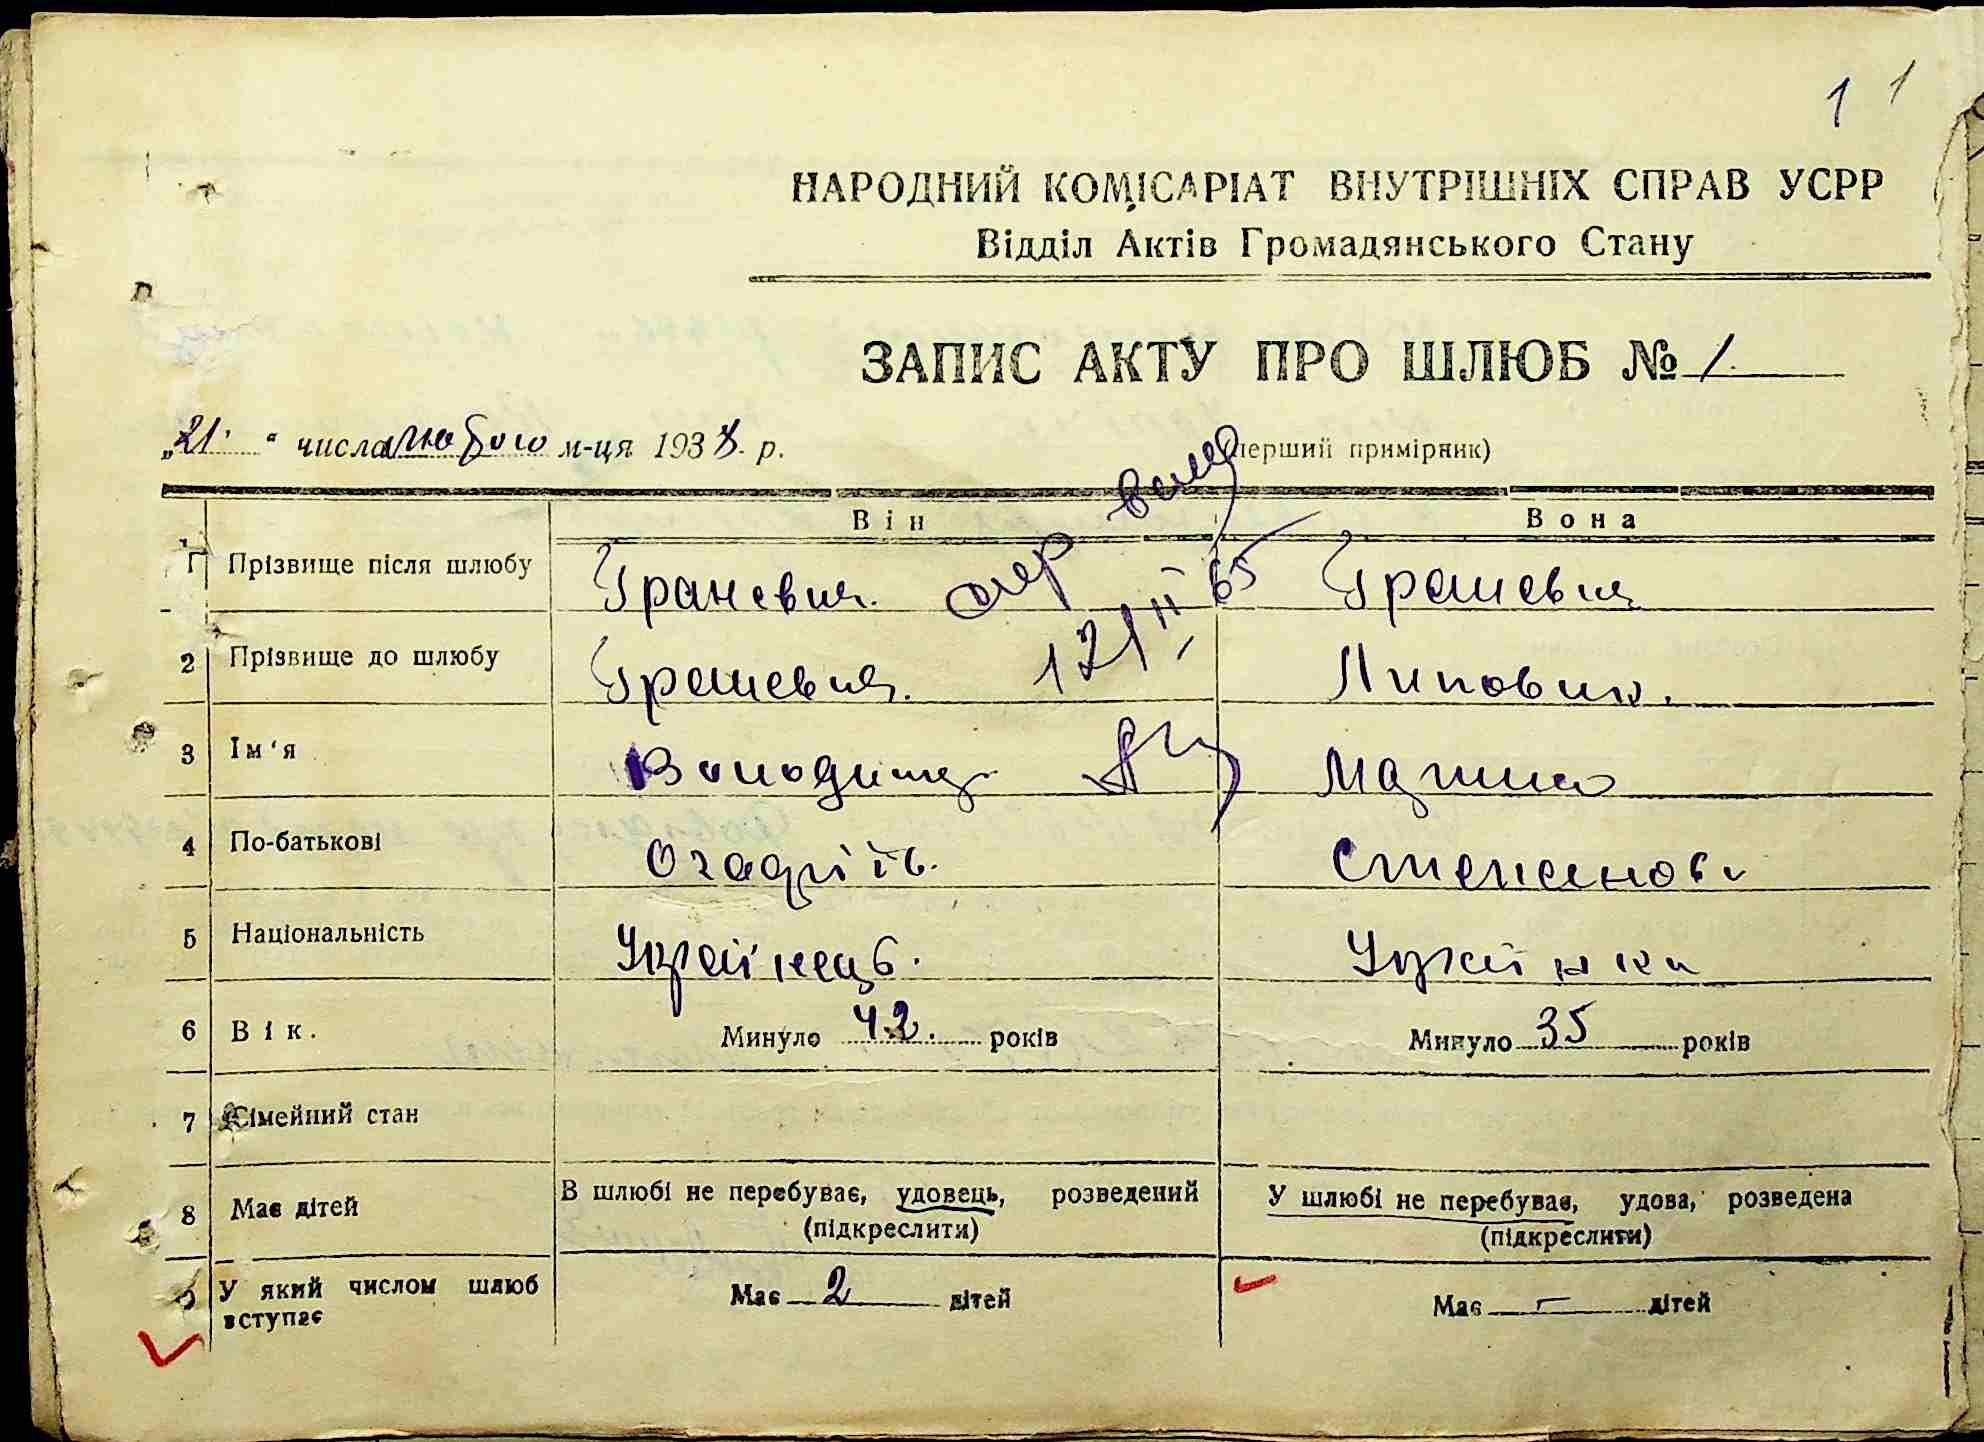 1 1
НАРОДНИЙ КОМІСАРІАТ ВНУТРІШНІХ СПРАВ УСРР
Відділ Актів Громадянського Стану
ЗАПИС АКТУ ПРО ШЛЮБ № 1
„21" числа лютого м-ця 1938 р. (перший примірник)
Він Вона
1 Прізвище після шлюбу Граневич. Граневич
2 Прізвище до шлюбу Граневич. Липович.
3 Ім'я Володимир Марина
4 По-батькові Степанов
5 Національність Українець. Українка
6 Вік. Минуло 42. років Минуло 35 років
7 Сімейний стан
8 Має дітей В шлюбі не перебуває, удовець, розведений (підкреслити) У шлюбі не перебуває, удова, розведена (підкреслити)
У який числом шлюб вступає Має 2 дітей Має - дітей